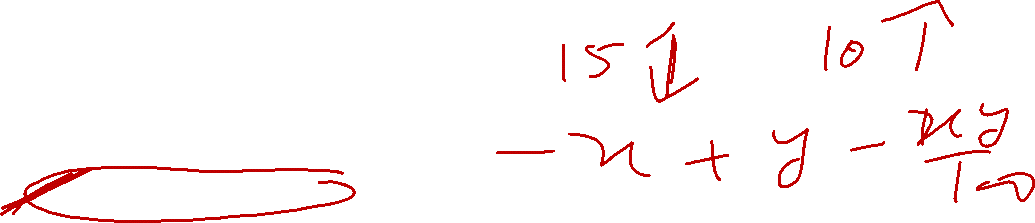 15 ↓ 10 ↑
- x + y - xy/100